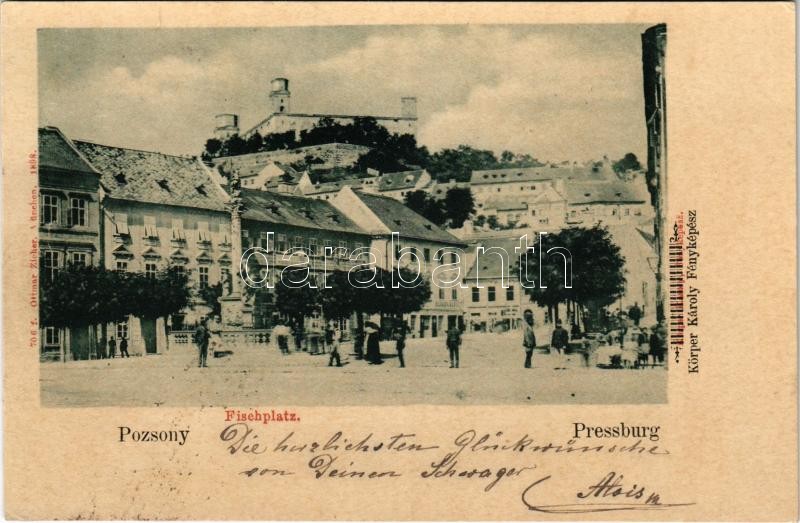 706 f. Ottmar Zieher, München. 1898.
darabanth
Körper Károly Fényképész
Fischplatz.
Pozsony
Pressburg
Die herzlichsten Glückwünsche
von Deinen Schwager
Alois